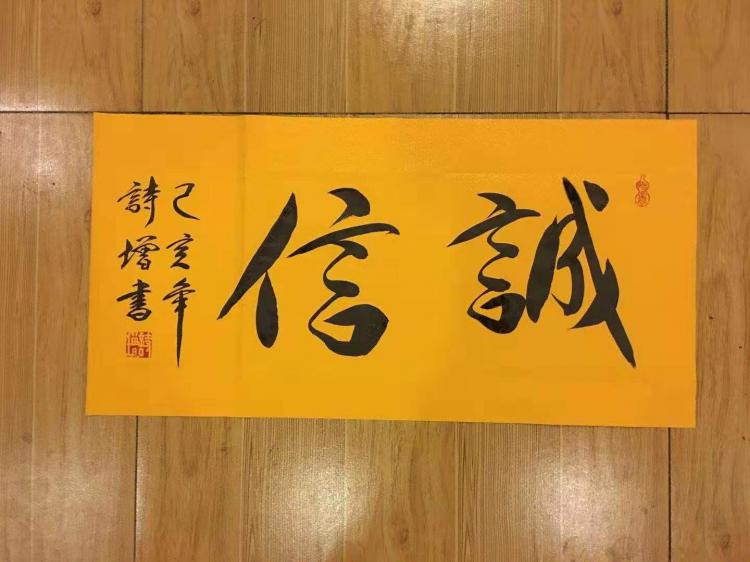 誠信
己亥年
詩增書